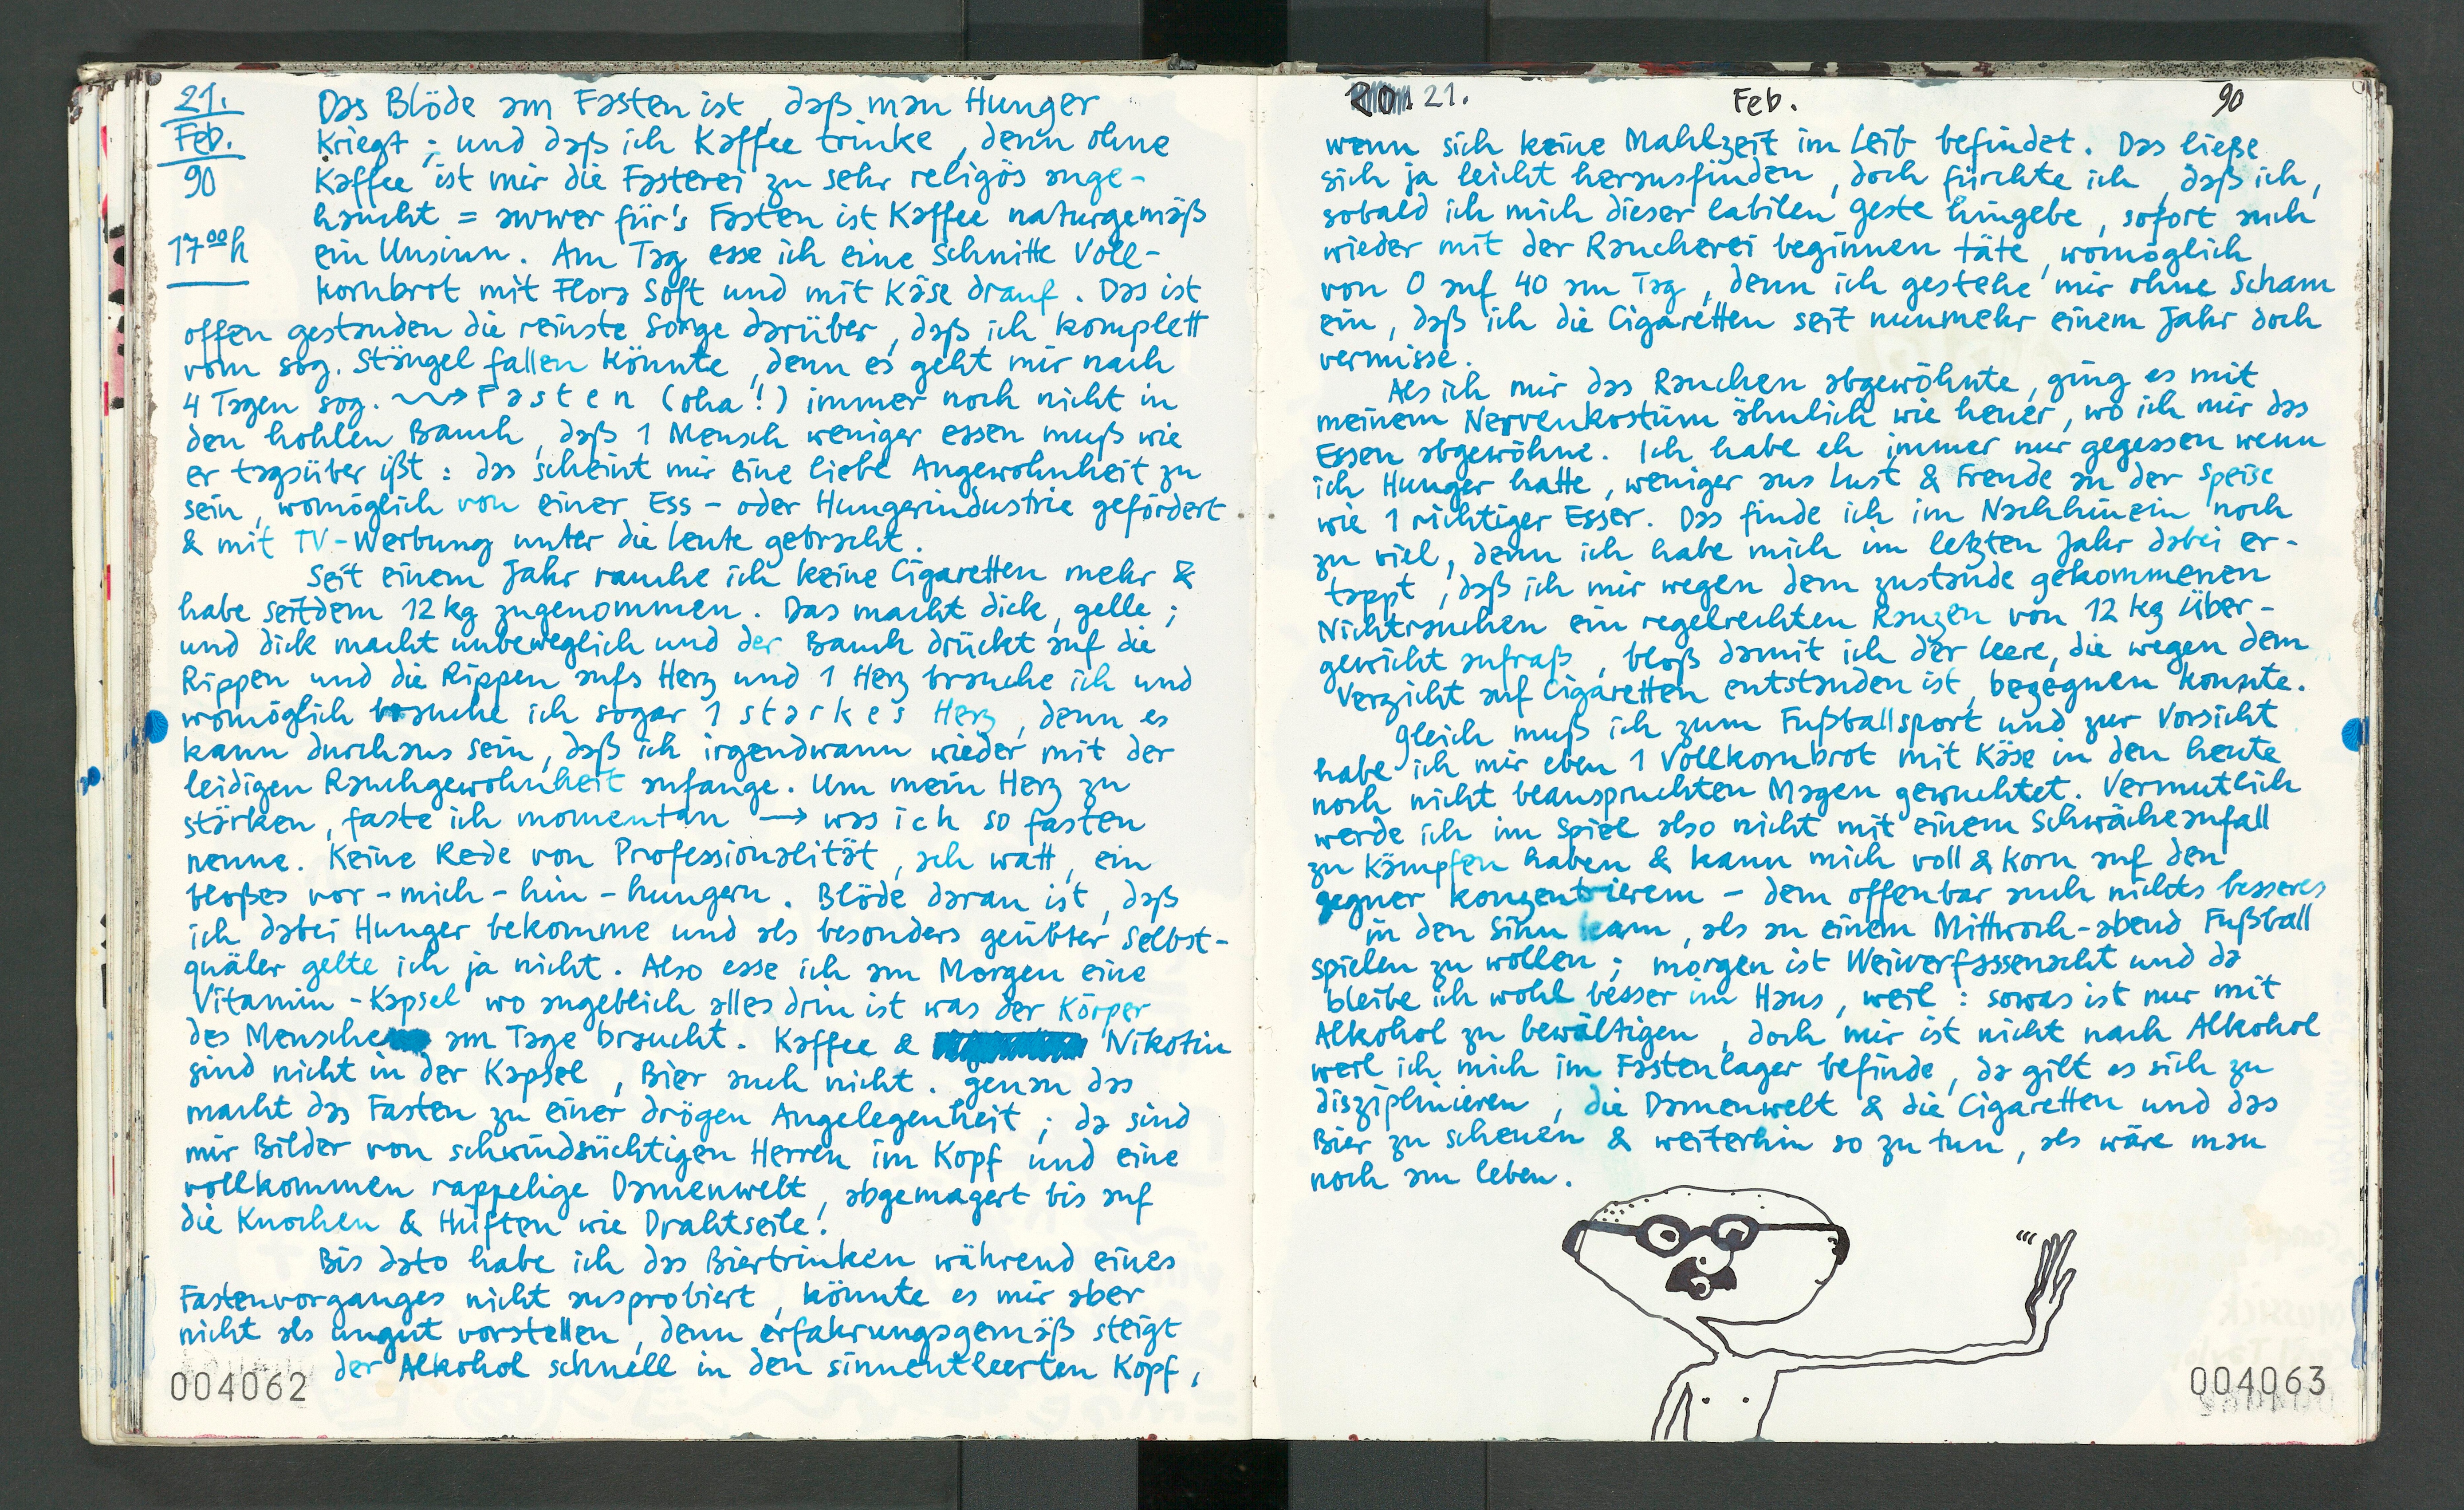 21.
Feb.
90
17⁰⁰h
Das Blöde am Fasten ist, daß man Hunger
kriegt; und daß ich Kaffee trinke, denn ohne
Kaffee ist mir die Fasterei zu sehr religös ange-
haucht = awwer für's Fasten ist Kaffee naturgemäß
ein Unsinn. Am Tag esse ich eine Schnitte Voll-
kornbrot mit Flora Soft und mit Käse drauf. Das ist
offen gestanden die reinste Sorge darüber, daß ich komplett
vom sog. Stängel fallen könnte, denn es geht mir nach
4 Tagen sog. ~~> Fasten (oha!) immer noch nicht in
den hohlen Bauch, daß 1 Mensch weniger essen muß wie
er tagsüber ißt: das scheint mir eine liebe Angewohnheit zu
sein, womöglich von einer Ess- oder Hungerindustrie gefördert
& mit TV-Werbung unter die Leute gebracht.
Seit einem Jahr rauche ich keine Cigaretten mehr &
habe seitdem 12 kg zugenommen. Das macht dick, gelle;
und dick macht unbeweglich und der Bauch drückt auf die
Rippen und die Rippen aufs Herz und 1 Herz brauche ich und
womöglich brauche ich sogar 1 starkes Herz, denn es
kann durchaus sein, daß ich irgendwann wieder mit der
leidigen Rauchgewohnheit anfange. Um mein Herz zu
stärken, faste ich momentan → was ich so fasten
nenne. Keine Rede von Professionalität, ach watt, ein
bloßes vor-mich-hin-hungern. Blöde daran ist, daß
ich dabei Hunger bekomme und als besonders geübter Selbst-
quäler gelte ich ja nicht. Also esse ich am Morgen eine
Vitamin-Kapsel wo angeblich alles drin ist was der Körper
des Menschen am Tage braucht. Kaffee & Nikotin
sind nicht in der Kapsel, Bier auch nicht. Genau das
macht das Fasten zu einer drögen Angelegenheit; da sind
mir Bilder von schwindsüchtigen Herren im Kopf und eine
vollkommen rappelige Damenwelt, abgemagert bis auf
die Knochen & Hüften wie Drahtseile!
Bis dato habe ich das Biertrinken während eines
Fastenvorganges nicht ausprobiert, könnte es mir aber
nicht als ungut vorstellen, denn erfahrungsgemäß steigt
der Alkohol schnell in den sinnentleerten Kopf,
004062
20. 21. Feb. 90
wenn sich keine Mahlzeit im Leib befindet. Das ließe
sich ja leicht herausfinden, doch fürchte ich, daß ich,
sobald ich mich dieser labilen Geste hingebe, sofort auch
wieder mit der Raucherei beginnen täte, womöglich
von 0 auf 40 am Tag, denn ich gestehe mir ohne Scham
ein, daß ich die Cigaretten seit nunmehr einem Jahr doch
vermisse.
Als ich mir das Rauchen abgewöhnte, ging es mit
meinem Nervenkostüm ähnlich wie heuer, wo ich mir das
Essen abgewöhne. Ich habe eh immer nur gegessen wenn
ich Hunger hatte, weniger aus Lust & Freude an der Speise
wie 1 richtiger Esser. Das finde ich im Nachhinein noch
zu viel, denn ich habe mich im letzten Jahr dabei er-
tappt, daß ich mir wegen dem zustande gekommenen
Nichtrauchen ein regelrechten Ranzen von 12 kg Über-
gewicht anfraß, bloß damit ich der Leere, die wegen dem
Verzicht auf Cigaretten entstanden ist, begegnen konnte.
Gleich muß ich zum Fußballsport und zur Vorsicht
habe ich mir eben 1 Vollkornbrot mit Käse in den heute
noch nicht beanspruchten Magen gewuchtet. Vermutlich
werde ich im Spiel also nicht mit einem Schwächeanfall
zu kämpfen haben & kann mich voll & Korn auf den
Gegner konzentrieren – dem offenbar auch nichts besseres
in den Sinn kam, als an einem Mittwoch-abend Fußball
spielen zu wollen; morgen ist Weiwerfassenacht und da
bleibe ich wohl besser im Haus, weil: sowas ist nur mit
Alkohol zu bewältigen, doch mir ist nicht nach Alkohol
weil ich mich im Fastenlager befinde, da gilt es sich zu
disziplinieren, die Damenwelt & die Cigaretten und das
Bier zu scheuen & weiterhin so zu tun, als wäre man
noch am Leben.
004063